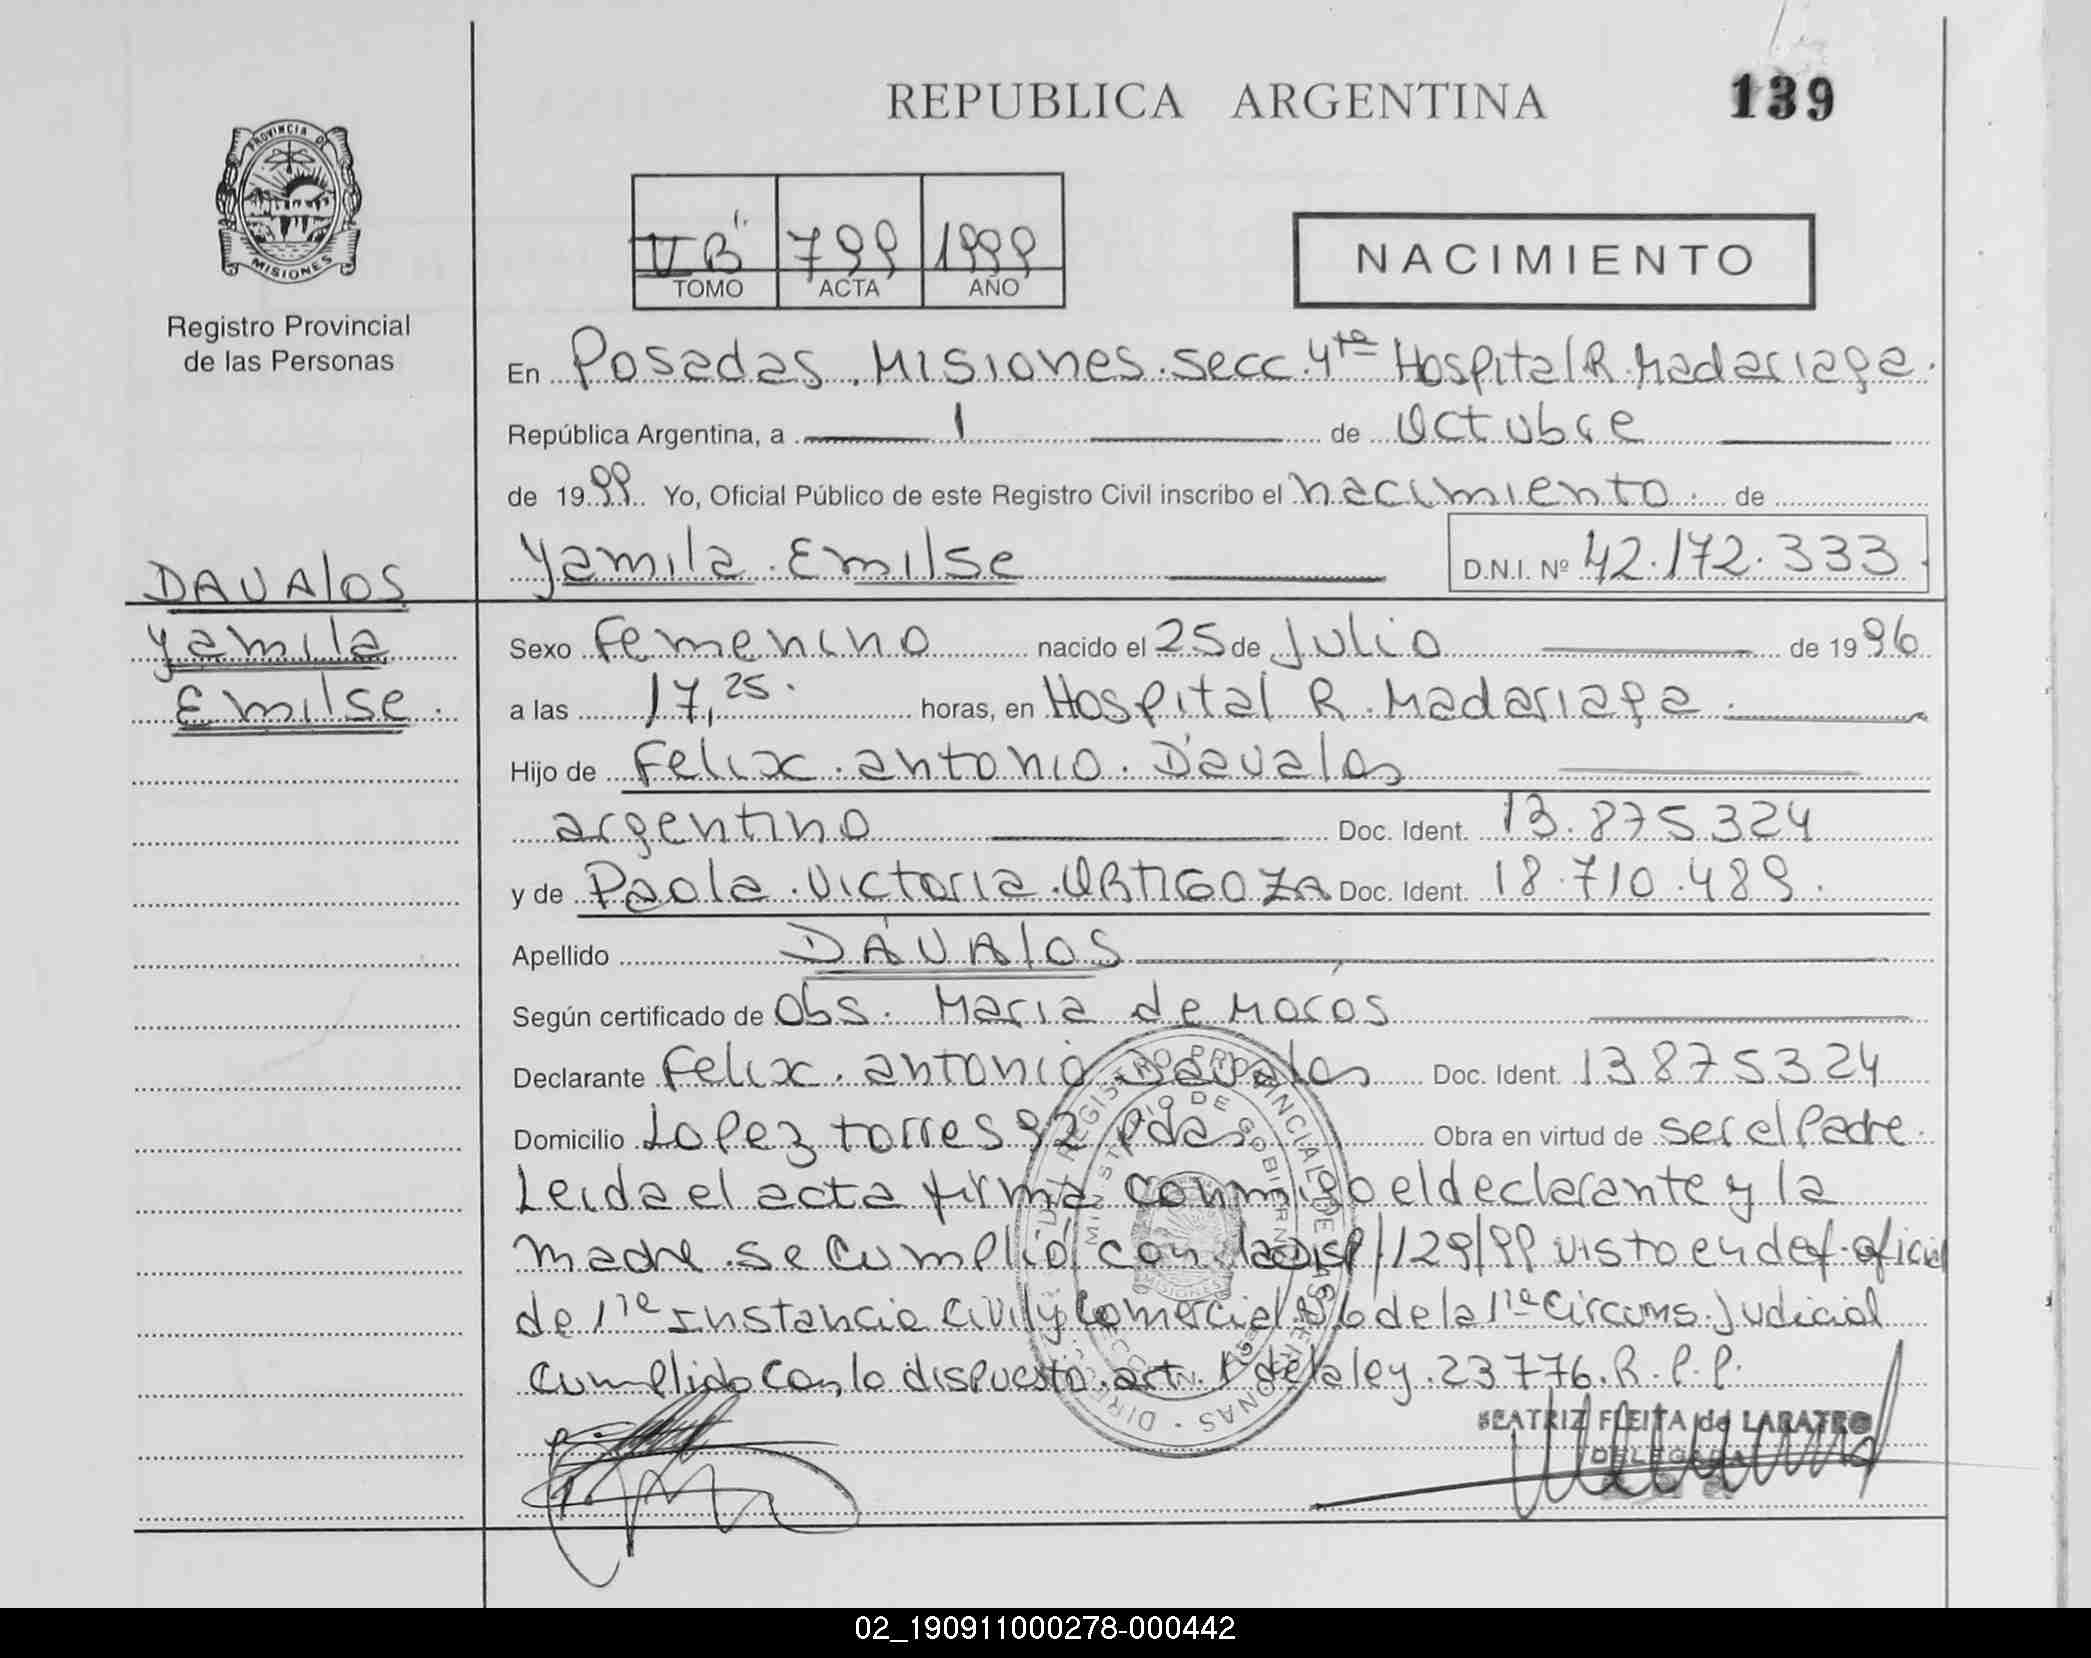 REPUBLICA ARGENTINA
139
PROVINCIA DE
MISIONES
Registro Provincial
de las Personas
B" 799 1999
TOMO ACTA AÑO
NACIMIENTO
En Posadas. Misiones. secc. 4ta Hospital R. Madariaga.
República Argentina, a 1 de Octubre
de 1999 Yo, Oficial Público de este Registro Civil inscribo el nacimiento. de
Yamila. Emilse D.N.I. Nº 42.172.333.
DAVAlOS
Yamila
Emilse.
Sexo Femenino nacido el 25 de Julio de 1996
a las 17,25. horas, en Hospital R. Madariaga.
Hijo de Felix. antonio. Dávalos
argentino Doc. Ident. 13.875.324
y de Paola. Victoria. ORTIGOZA Doc. Ident. 18.710.489.
Apellido DÁVAlOS
Según certificado de Obs. Maria de Morós
Declarante Felix. antonio Davalos Doc. Ident. 13875324
Domicilio Lopez torres 92 Pdas Obra en virtud de ser el Padre.
Leida el acta firma conmigo el declarante y la
madre. se Cumplió con la Disp/129/99 visto en def. oficial
de 1ra Instancia Civil y Comercial 6 de la 1ra Circuns. Judicial
Cumplido con lo dispuesto. art. 1 de la ley. 23776. R.P.P.
MINISTERIO DE GOBIERNO
BEATRIZ FLEITA de LABATEO
DELEGADA
02_190911000278-000442